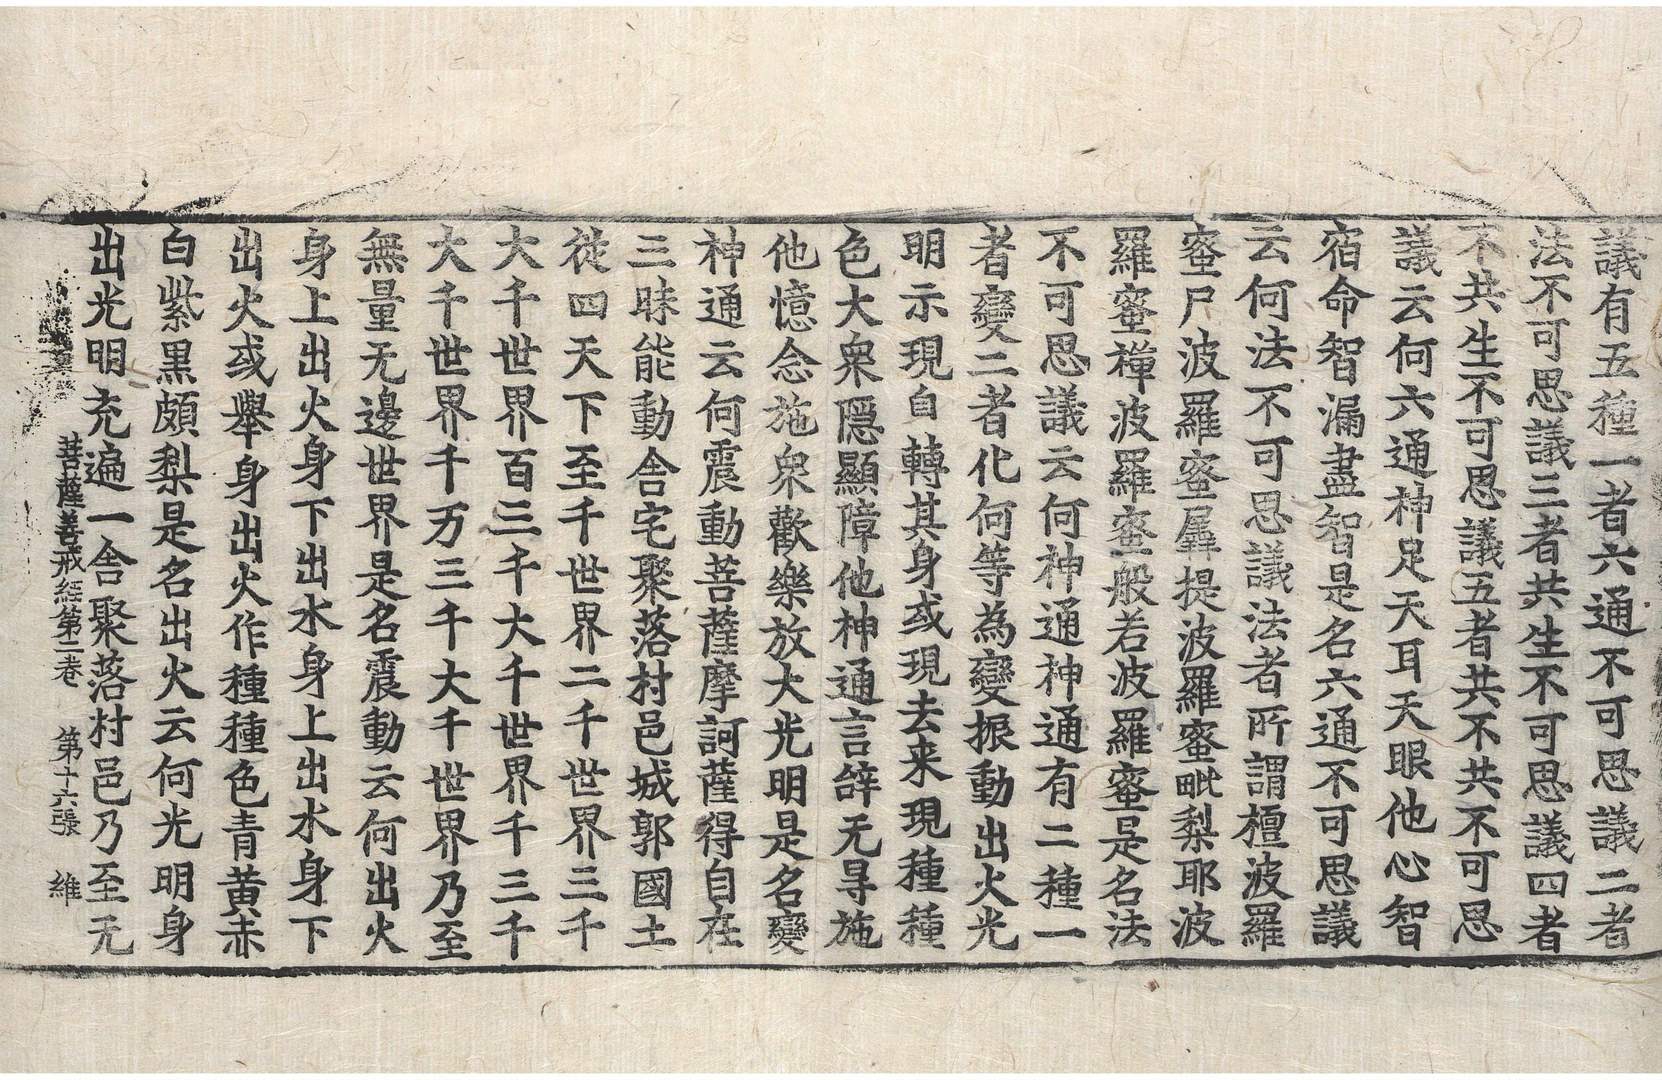 議有五種一者六通不可思議二者
法不可思議三者共生不可思議四者
不共生不可思議五者共不共不可思
議云何六通神足天耳天眼他心智
宿命智漏盡智是名六通不可思議
云何法不可思議法者所謂檀波羅
蜜尸波羅蜜羼提波羅蜜毗梨耶波
羅蜜禪波羅蜜般若波羅蜜是名法
不可思議云何神通神通有二種一
者變二者化何等為變振動出火光
明示現自轉其身或現去来現種種
色大衆隠顯障他神通言辝无㝵施
他憶念施衆歡樂放大光明是名變
神通云何震動菩薩摩訶薩得自在
三昧能動舎宅聚落村邑城郭國土
從四天下至千世界二千世界三千
大千世界百三千大千世界千三千
大千世界千万三千大千世界乃至
無量无邊世界是名震動云何出火
身上出火身下出水身上出水身下
出火或舉身出火作種種色青黄赤
白紫黒頗梨是名出火云何光明身
出光明充遍一舎聚落村邑乃至无
菩薩善戒經第二卷　第十六張　維